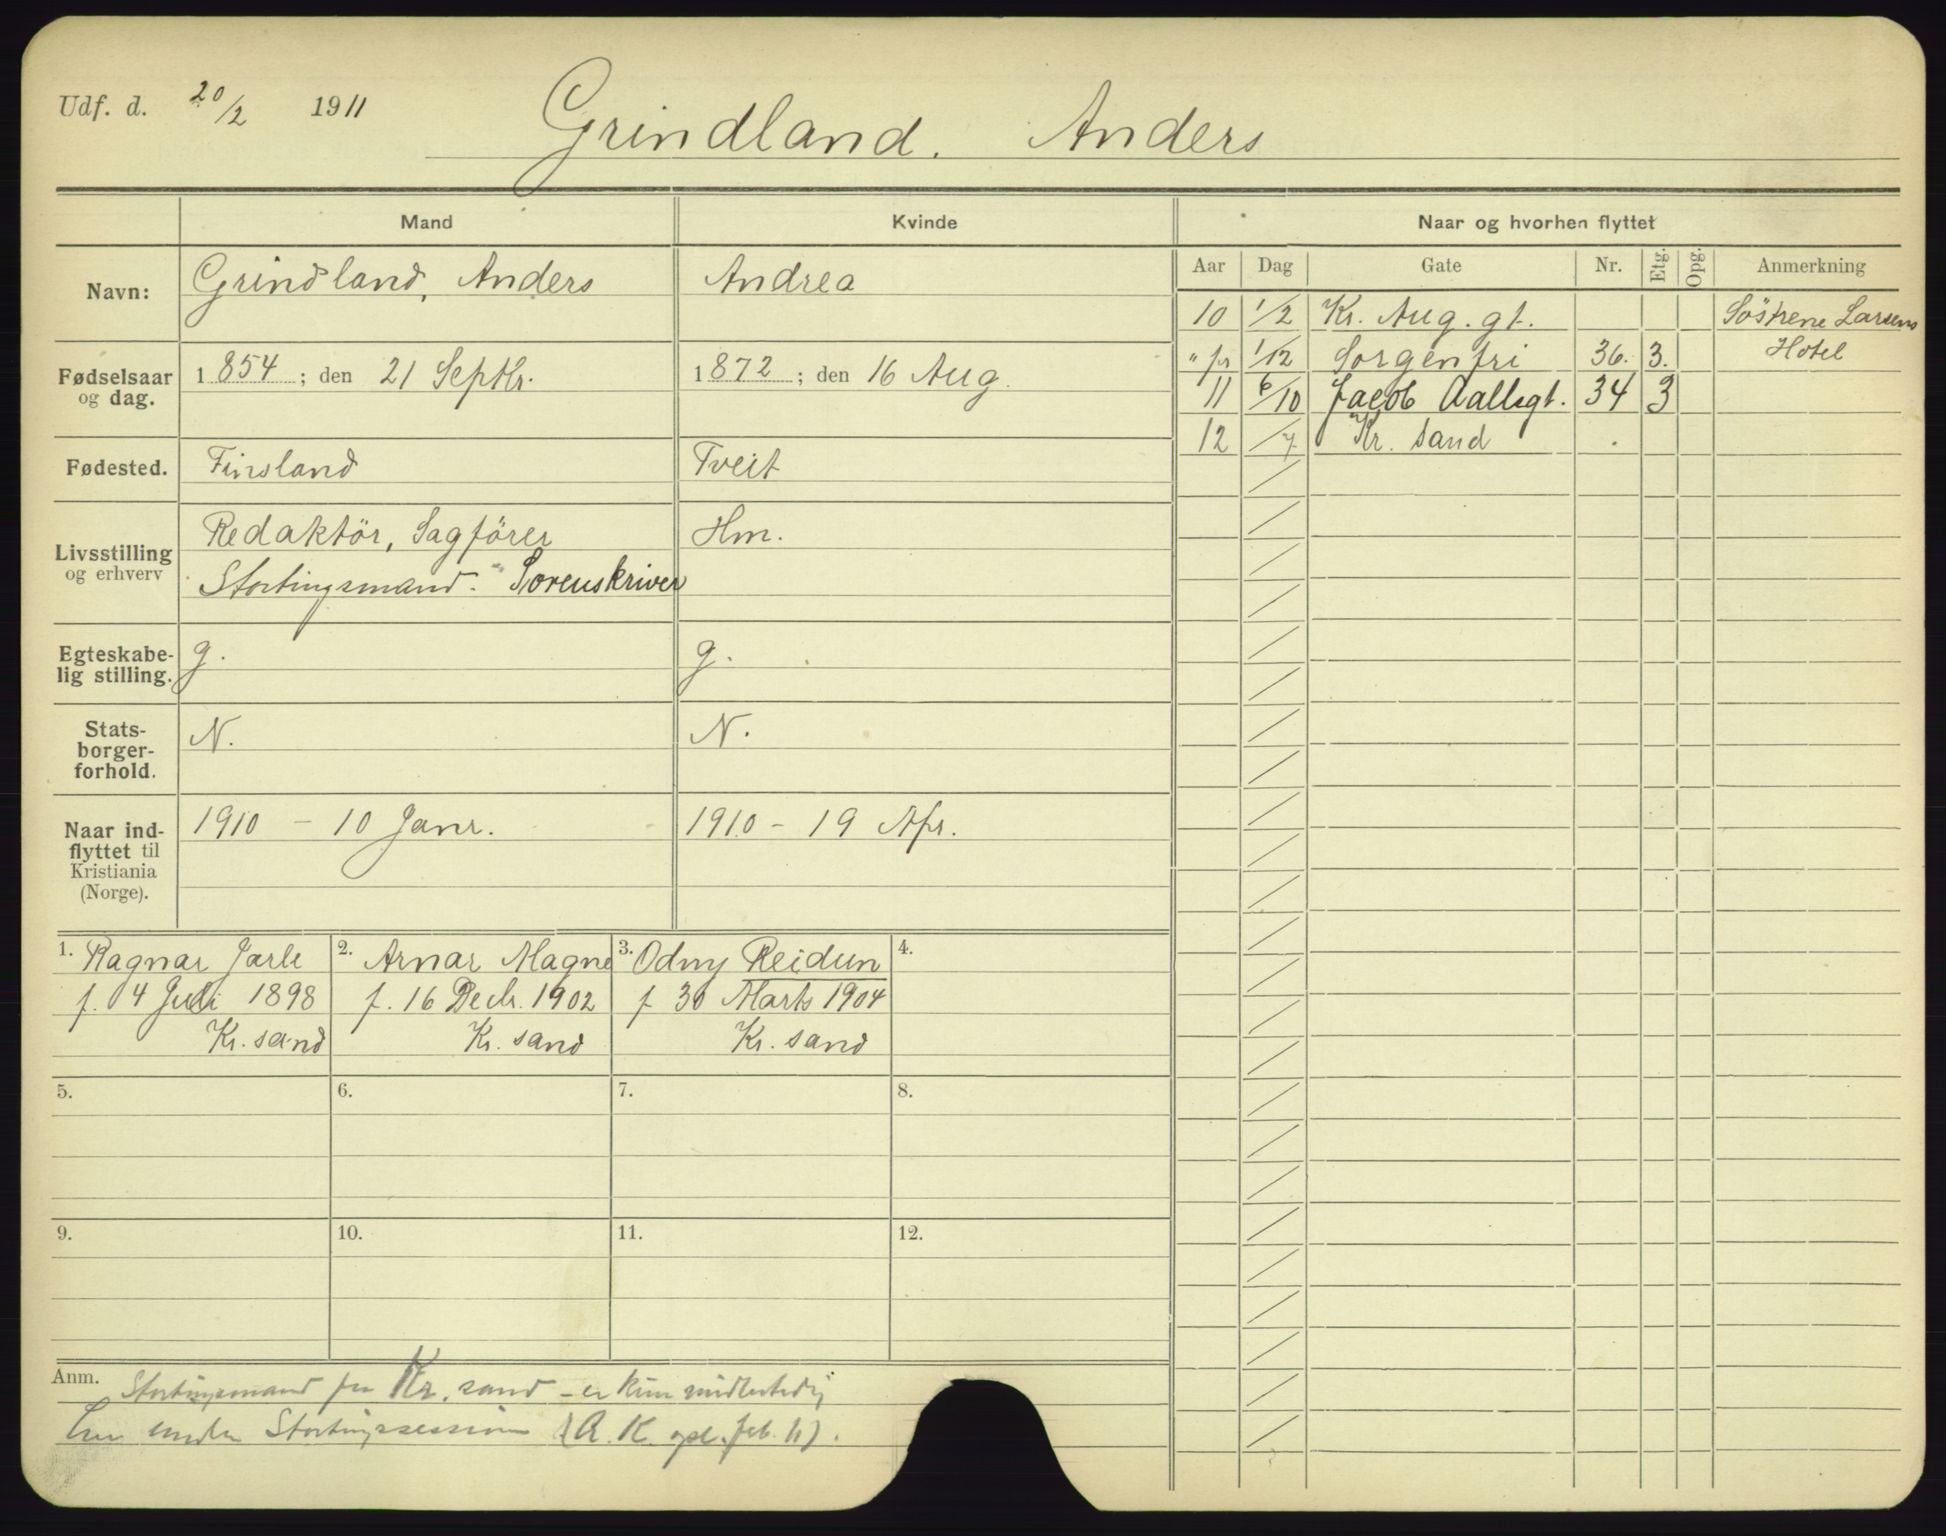 Udf. d. 20/2 1911 Grindland. Anders
Mand Kvinde Naar og hvorhen flyttet
Navn: Grindland, Anders Andrea
Fødselsaar og dag. 1854; den 21 Septbr. 1872; den 16 Aug.
Fødested. Finsland Tveit
Livsstilling og erhverv Redaktör, Sagförer Hm.
Stortingsmand. Sorenskriver
Egteskabe-
lig stilling. g. g.
Stats-
borger-
forhold. N. N.
Naar ind-
flyttet til
Kristiania
(Norge). 1910 - 10 Janr. 1910 - 19 Apr.
Aar Dag Gate Nr. Etg. Opg. Anmerkning
10 1/2 Kr. Aug. gt. Söstrene Larsens
" pr 1/12 Sorgenfri 36. 3. Hotel
11 6/10 Jacob Aallsgt. 34 3
12 /7 Kr. sand
1. Ragnar Jarle
f. 4 Juli 1898
Kr. sand
2. Arnar Magne
f. 16 Decbr. 1902
Kr. sand
3. Odny Reidun
f 30 Marts 1904
Kr. sand
4.
5. 6. 7. 8.
9. 10. 11. 12.
Anm. Stortingsmand fra Kr. sand - er kun midlertidig
her under Stortingssession (A. K. feb. 11).